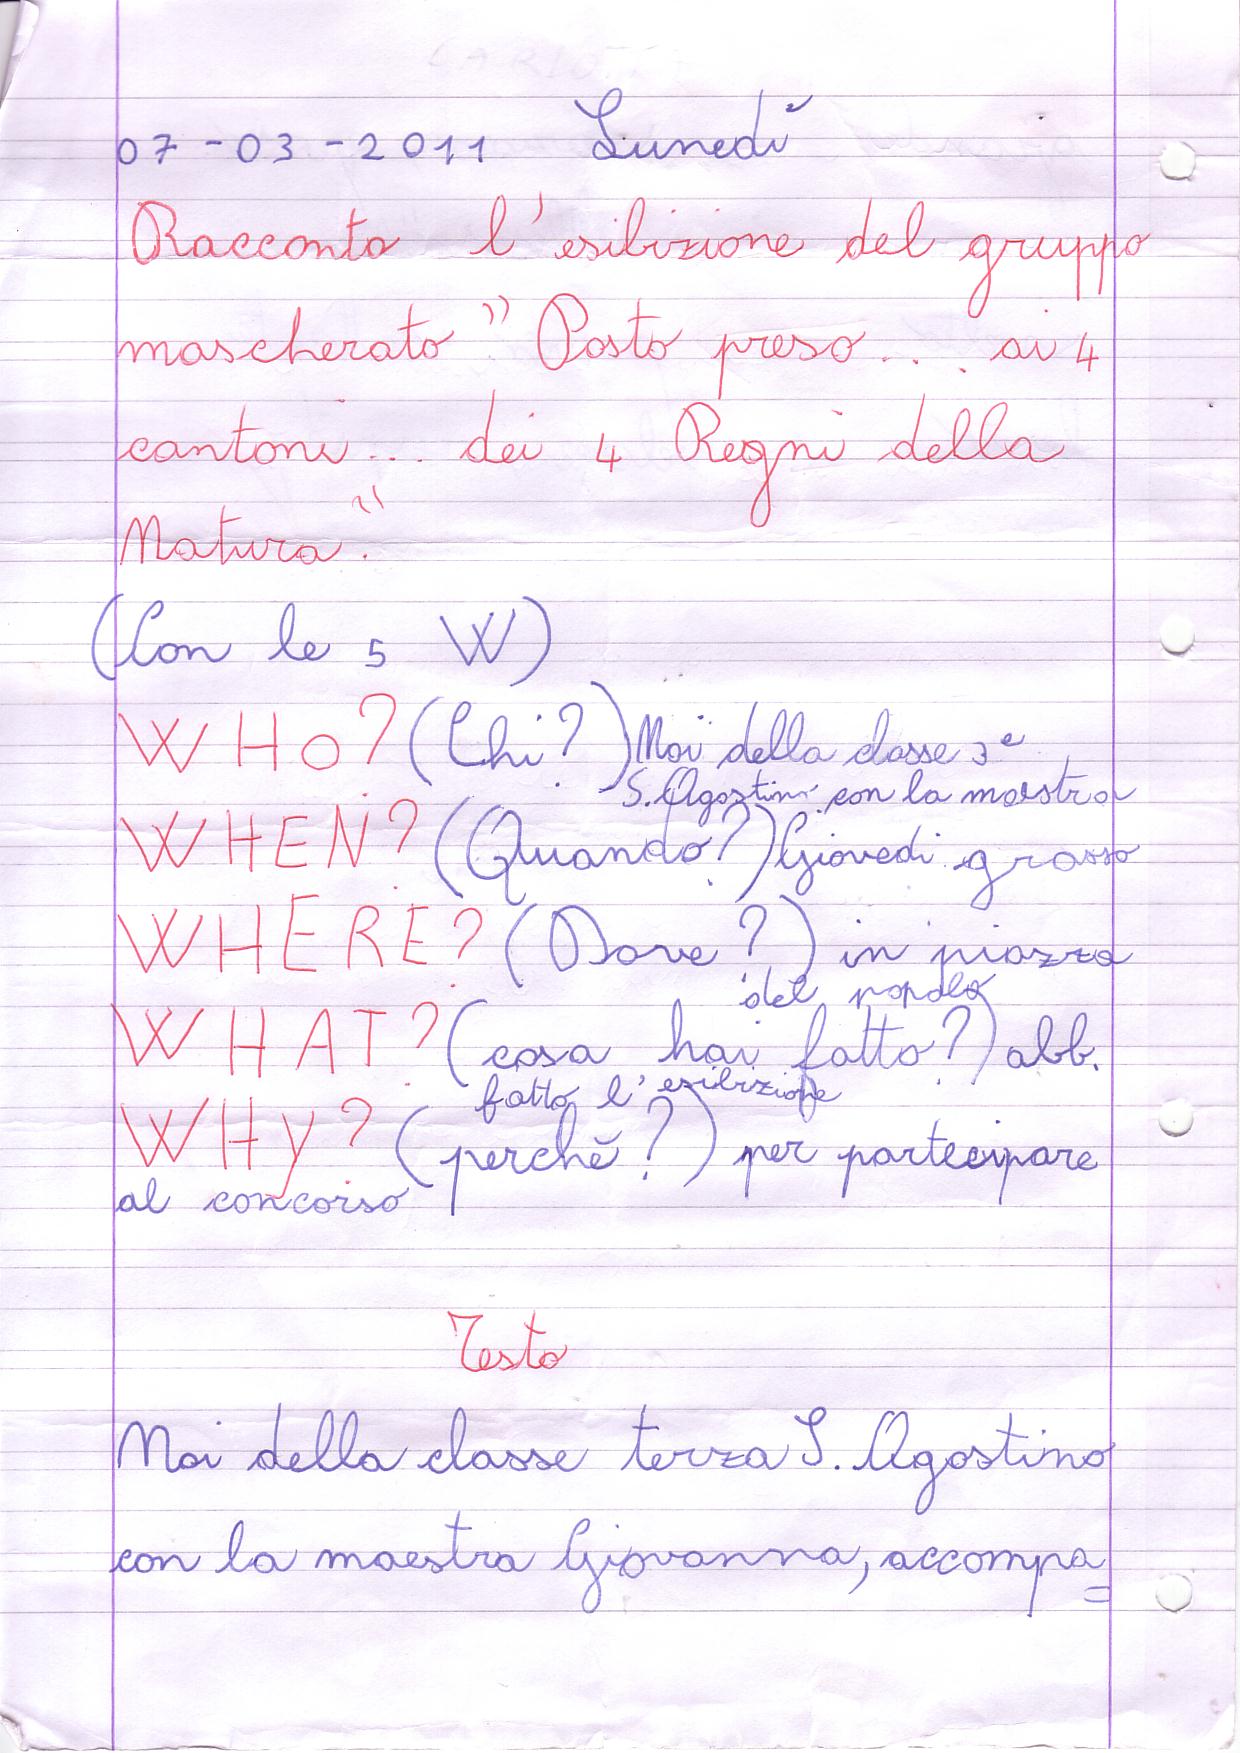 07-03-2011 Lunedì
Racconto l'esibizione del gruppo
mascherato "Posto preso... ai 4
cantoni... dei 4 Regni della
Natura".
(Con le 5 W)
WHO? (Chi?) Noi della classe 3ª
S. Agostino con la maestra
WHEN? (Quando?) Giovedì grasso
WHERE? (Dove?) in piazza
del popolo
WHAT? (cosa hai fatto?) abb.
fatto l'esibizione
WHY? (perchè?) per partecipare
al concorso
Testo
Noi della classe terza S. Agostino
con la maestra Giovanna, accompa=